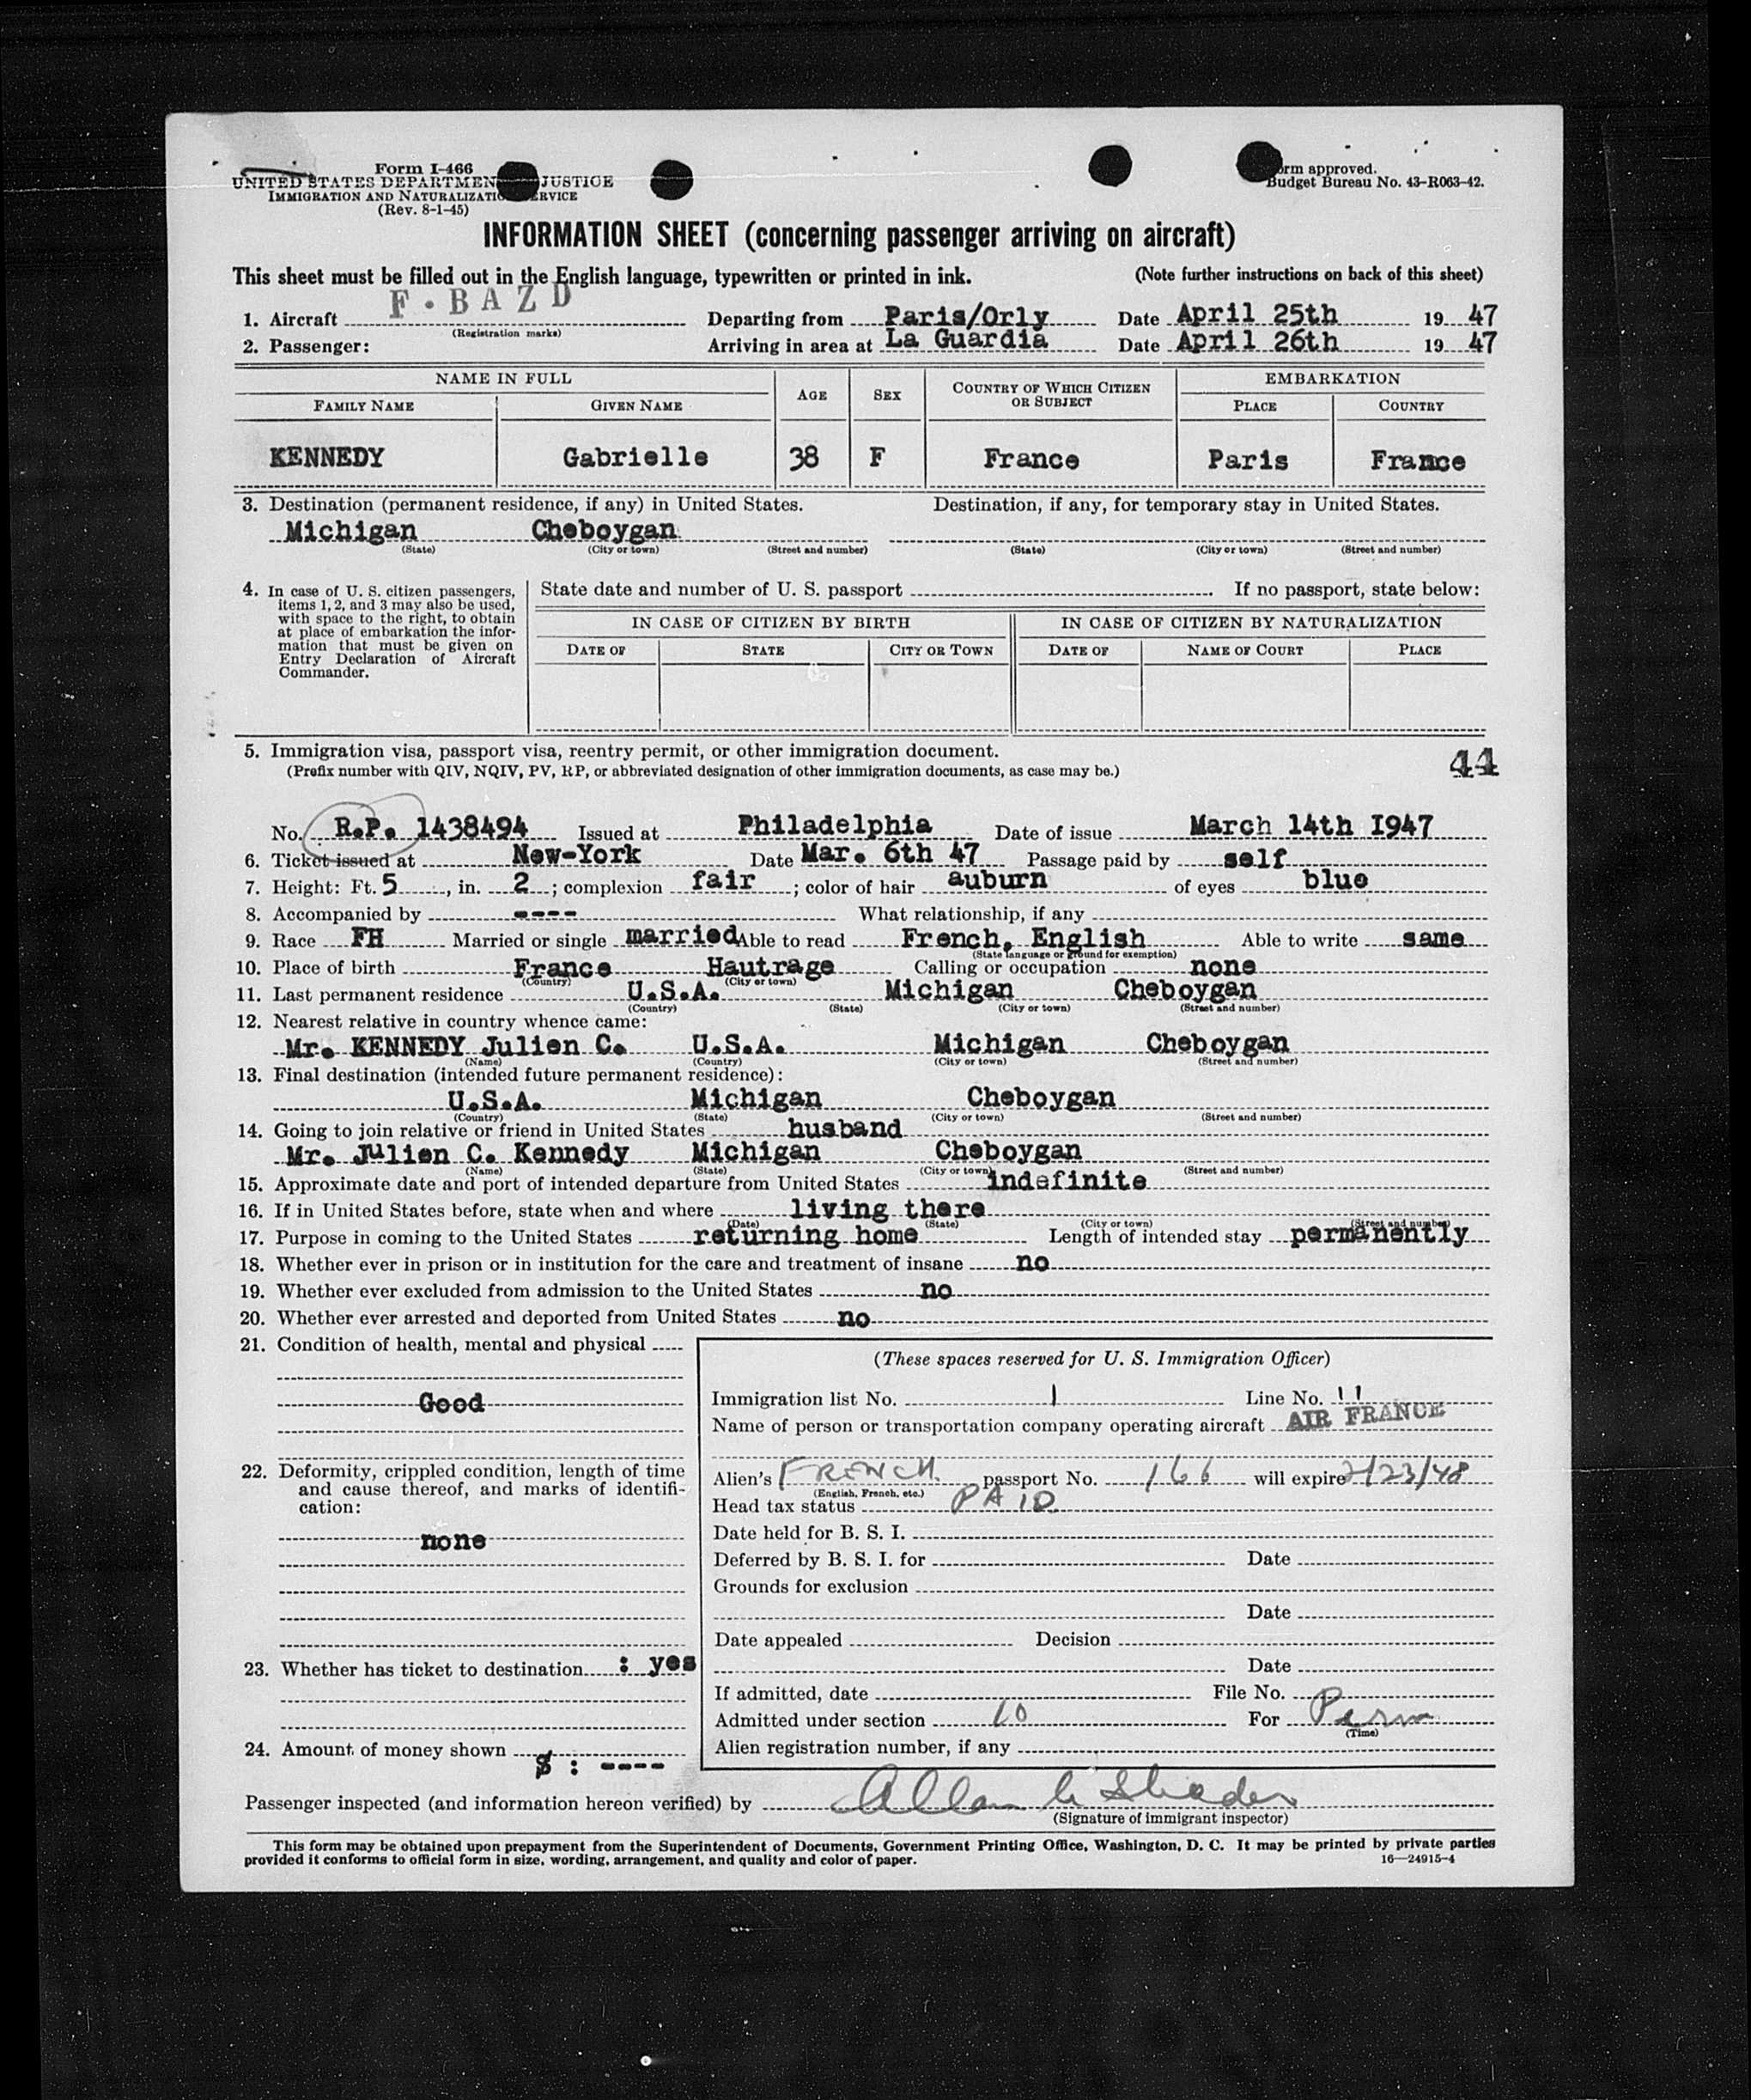 Form I-466
UNITED STATES DEPARTMEN JUSTICE
IMMIGRATION AND NATURALIZATIO ERVICE
(Rev. 8-1-45)
orm approved.
Budget Bureau No. 43-R063-42.
INFORMATION SHEET (concerning passenger arriving on aircraft)
This sheet must be filled out in the English language, typewritten or printed in ink. (Note further instructions on back of this sheet)
1. Aircraft F-BAZD Departing from Paris/Orly Date April 25th 19 47
(Registration marks)
2. Passenger: Arriving in area at La Guardia Date April 26th 19 47
NAME IN FULL AGE SEX COUNTRY OF WHICH CITIZEN OR SUBJECT EMBARKATION
FAMILY NAME GIVEN NAME PLACE COUNTRY
KENNEDY Gabrielle 38 F France Paris France
3. Destination (permanent residence, if any) in United States. Destination, if any, for temporary stay in United States.
Michigan Cheboygan
(State) (City or town) (Street and number) (State) (City or town) (Street and number)
4. In case of U. S. citizen passengers, items 1, 2, and 3 may also be used, with space to the right, to obtain at place of embarkation the information that must be given on Entry Declaration of Aircraft Commander.
State date and number of U. S. passport If no passport, state below:
IN CASE OF CITIZEN BY BIRTH IN CASE OF CITIZEN BY NATURALIZATION
DATE OF STATE CITY OR TOWN DATE OF NAME OF COURT PLACE
5. Immigration visa, passport visa, reentry permit, or other immigration document.
(Prefix number with QIV, NQIV, PV, RP, or abbreviated designation of other immigration documents, as case may be.)
44
No. R.P. 1438494 Issued at Philadelphia Date of issue March 14th 1947
6. Ticket issued at New-York Date Mar. 6th 47 Passage paid by self
7. Height: Ft. 5, in. 2; complexion fair; color of hair auburn of eyes blue
8. Accompanied by ---- What relationship, if any
9. Race FH Married or single married Able to read French, English Able to write same
(State language or ground for exemption)
10. Place of birth France Hautrage Calling or occupation none
(Country) (City or town)
11. Last permanent residence U.S.A. Michigan Cheboygan
(Country) (State) (City or town) (Street and number)
12. Nearest relative in country whence came:
Mr. KENNEDY Julien C. U.S.A. Michigan Cheboygan
(Name) (Country) (City or town) (Street and number)
13. Final destination (intended future permanent residence):
U.S.A. Michigan Cheboygan
(Country) (State) (City or town) (Street and number)
14. Going to join relative or friend in United States husband
Mr. Julien C. Kennedy Michigan Cheboygan
(Name) (State) (City or town) (Street and number)
15. Approximate date and port of intended departure from United States indefinite
16. If in United States before, state when and where living there
(Date) (State) (City or town) (Street and number)
17. Purpose in coming to the United States returning home Length of intended stay permanently
18. Whether ever in prison or in institution for the care and treatment of insane no
19. Whether ever excluded from admission to the United States no
20. Whether ever arrested and deported from United States no
21. Condition of health, mental and physical
Good
22. Deformity, crippled condition, length of time and cause thereof, and marks of identification:
none
23. Whether has ticket to destination : yes
24. Amount of money shown $ : ----
(These spaces reserved for U. S. Immigration Officer)
Immigration list No. 1 Line No. 11
Name of person or transportation company operating aircraft AIR FRANCE
Alien's FRENCH passport No. 166 will expire 2/23/48
(English, French, etc.)
Head tax status PAID
Date held for B. S. I.
Deferred by B. S. I. for Date
Grounds for exclusion
Date
Date appealed Decision
Date
If admitted, date File No.
Admitted under section 10 For Perm
(Time)
Alien registration number, if any
Passenger inspected (and information hereon verified) by Allan
(Signature of immigrant inspector)
This form may be obtained upon prepayment from the Superintendent of Documents, Government Printing Office, Washington, D. C. It may be printed by private parties
provided it conforms to official form in size, wording, arrangement, and quality and color of paper. 16—24915-4